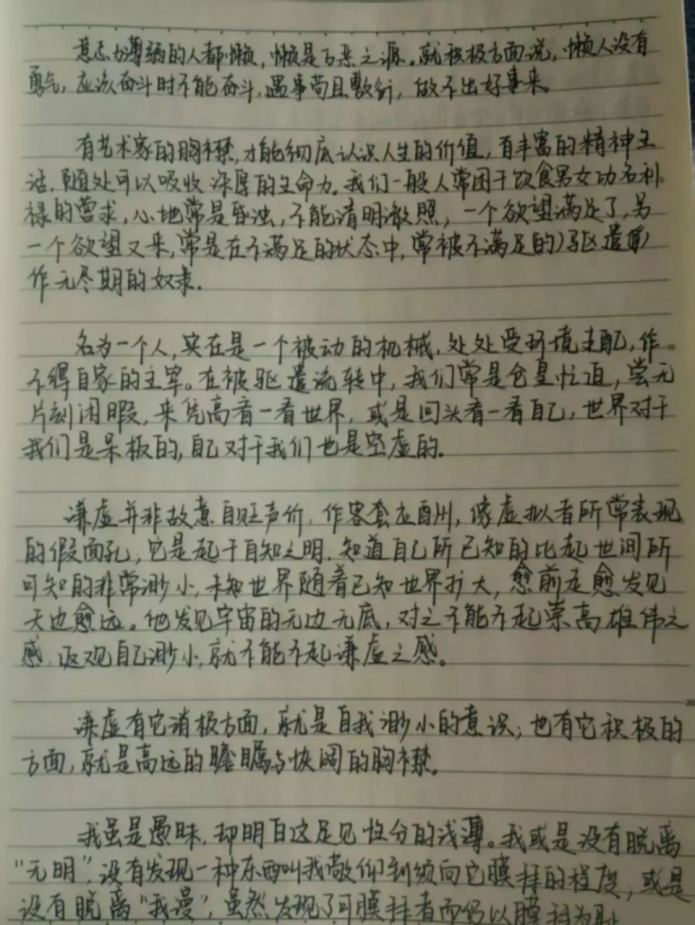 意志力薄弱的人都懒，懒是万恶之源。就积极方面说，懒人没有
勇气，应该奋斗时不能奋斗，遇事苟且敷衍，做不出好事来。
有艺术家的胸襟，才能彻底认识人生的价值，有丰富的精神生
活，随处可以吸收深厚的生命力。我们一般人常困于饮食男女功名利
禄的营求，心地常是昏浊，不能清明澈照，一个欲望满足了，另
一个欲望又来，常是在不满足的状态中，常被不满足的驱遣
作无尽期的奴隶。
名为一个人，实在是一个被动的机械，处处受环境支配，作
不得自家的主宰。在被驱遣流转中，我们常是仓皇忙迫，尝无
片刻闲暇，来凭高看一看世界，或是回头看一看自己，世界对于
我们是呆板的，自己对于我们也是空虚的。
谦虚并非故意自贬声价，作客套应酬，像虚拟者所常表现
的假面孔，它是起于自知之明，知道自己所已知的比起世间所
可知的非常渺小，未知世界随着已知世界扩大，愈前走愈发见
天边愈远。他发见宇宙的无边无底，对之不能不起崇高雄伟之
感，返观自己渺小，就不能不起谦虚之感。
谦虚有它消极方面，就是自我渺小的意识；也有它积极的
方面，就是高远的瞻瞩与恢阔的胸襟。
我虽是愚昧，却明白这足见性分的浅薄。我或是没有脱离
“无明”，没有发现一种东西叫我敬仰到须向它膜拜的程度，或是
没有脱离“我慢”，虽然发现了可膜拜者而仍以膜拜为耻